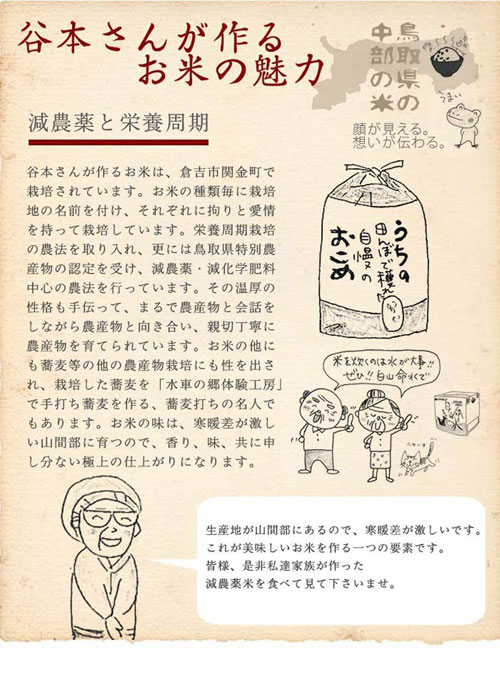 谷本さんが作る
お米の魅力
鳥取県の
中部の米
うまい
顔が見える。
想いが伝わる。
減農薬と栄養周期
谷本さんが作るお米は、倉吉市関金町で
栽培されています。お米の種類毎に栽培
地の名前を付け、それぞれに拘りと愛情
を持って栽培しています。栄養周期栽培
の農法を取り入れ、更には鳥取県特別農
産物の認定を受け、減農薬・減化学肥料
中心の農法を行っています。その温厚の
性格も手伝って、まるで農産物と会話を
しながら農産物と向き合い、親切丁寧に
農産物を育てられています。お米の他に
も蕎麦等の他の農産物栽培にも性を出さ
れ、栽培した蕎麦を「水車の郷体験工房」
で手打ち蕎麦を作る、蕎麦打ちの名人で
もあります。お米の味は、寒暖差が激し
い山間部に育つので、香り、味、共に申
し分ない極上の仕上がりになります。
うちの
田んぼで穫れた
自慢の
おこめ
米を炊くのは水が大事!!
ぜひ!!白山命水で
生産地が山間部にあるので、寒暖差が激しいです。
これが美味しいお米を作る一つの要素です。
皆様、是非私達家族が作った
減農薬米を食べて見て下さいませ。